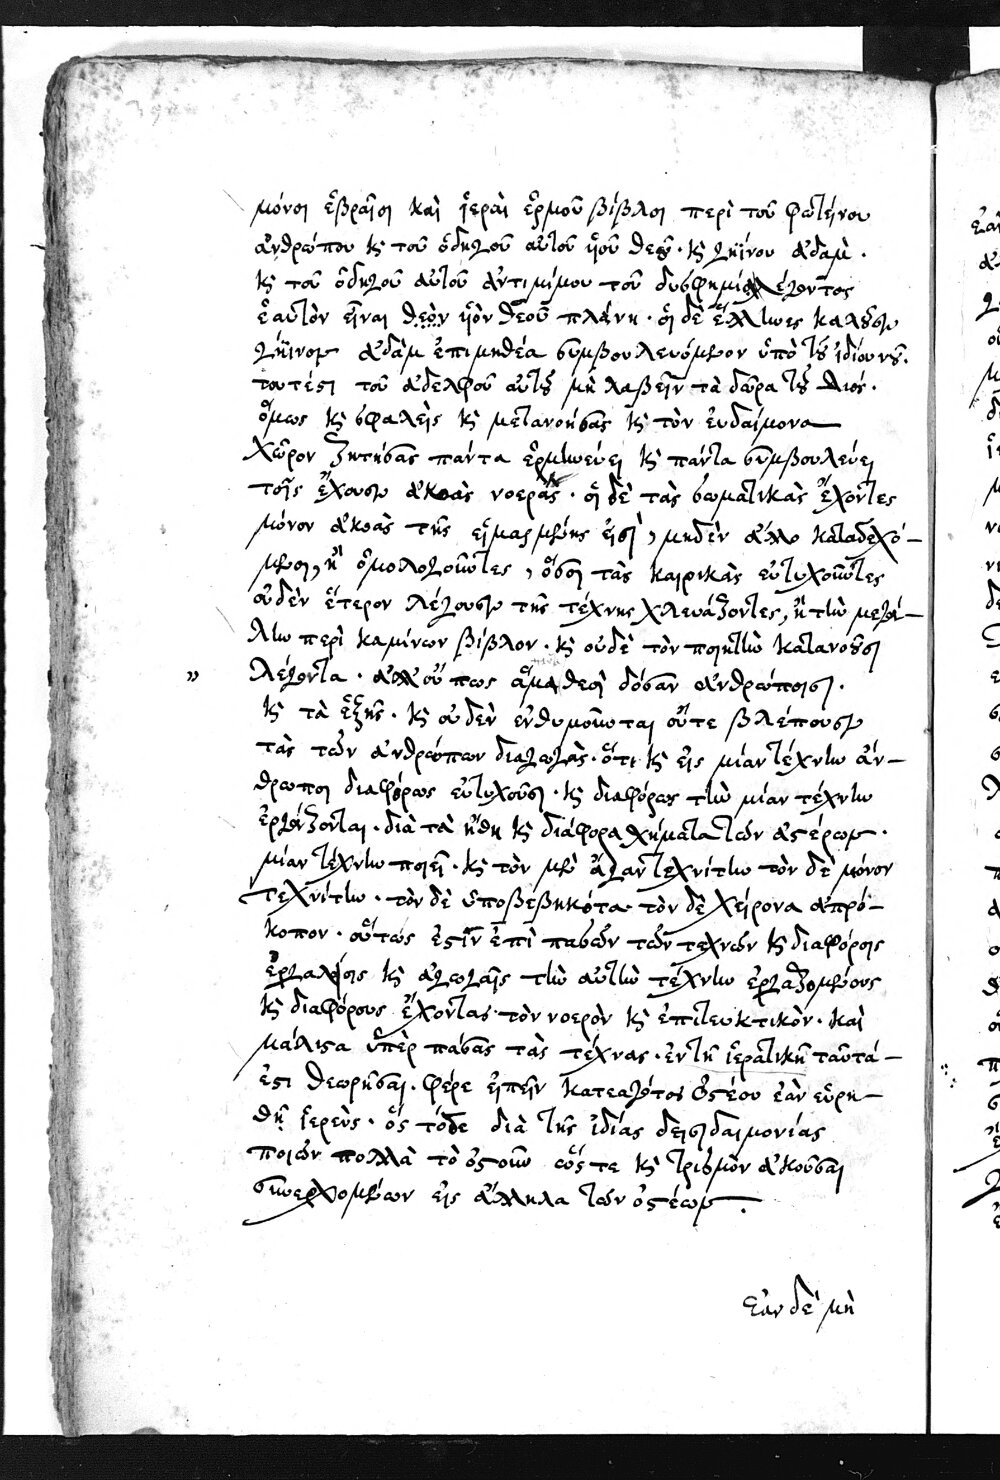 μόνοι ἑβραῖοι καὶ ἱεραὶ ἑρμοῦ βίβλοι περὶ τοῦ φωτείνου
ἀνθρώπου κὶ τοῦ ὁδηγοῦ αὐτοῦ ὑιοῦ θεοῦ· κὶ γηίνου ἀδαμ·
κὶ τοῦ ὁδηγοῦ αὐτοῦ ἀντιμίμου τοῦ δυσφημία λέγοντος
ἑαυτὸν εἶναι θεὸν ὑιὸν θεοῦ πλάνη· οἱ δὲ ἕλληνες καλοῦσιν
γήϊνον ἀδὰμ ἐπιμηθέα συμβουλευόμενον ὑπὸ τοῦ ἰδίου νοῦ·
τουτέστι τοῦ ἀδελφοῦ αὐτοῦ μὴ λαβεῖν τὰ δῶρα τοῦ Διός·
ὅμως κὶ σφαλεὶς κὶ μετανοήσας κὶ τὸν ευδαίμονα
χῶρον ζητήσας πάντα ἑρμηνεύει κὶ πάντα συμβουλεύει
τοῖς ἔχουσιν ἀκοὰς νοεράς· οἱ δὲ τὰς σωματικὰς ἔχοντες
μόνον ἀκοὰς τῆς εἱμαρμένης εἰσὶ, μηδὲν ἄλλο καταδεχό-
μενοι, ἢ ὁμολογοῦντες, ὅσοι τὰς καιρικὰς εὐτυχοῦντες
οὐδὲν ἕτερον λέγουσιν τῆς τέχνης χλευάζοντες, ἢ τὴν μεγά-
λην περὶ καμίνων βίβλον· κὶ οὐδὲ τὸν ποιητὴν κατανοοῦσι
λέγοντα· ἀλλ' οὔπως ἅμα θεοὶ δόσαν ἀνθρώποισι·
κὶ τὰ ἑξῆς· κὶ οὐδὲν ἐνθυμοῦνται οὔτε βλέπουσιν
τὰς τῶν ἀνθρώπων διαγωγὰς· ὅτι κὶ εἰς μίαν τέχνην ἄν-
θρωποι διαφόρως εὐτυχοῦσι· κὶ διαφόρως τὴν μίαν τέχνην
ἐργάζονται· διὰ τὰ ἤθη κὶ διάφορα χήματα τῶν ἀστέρων·
μίαν τέχνην ποιεῖ· κὶ τὸν μὲν ἄγαν τεχνίτην τὸν δὲ μόνον
τεχνίτην· τὸν δὲ ὑποβεβηκότα τὸν δὲ χείρονα ἀπρό-
κοπον· οὕτως ἐστὶν ἐπὶ πασῶν τῶν τεχνῶν κὶ διαφόροις
ἐργαλείοις κὶ ἀγωγαῖς τὴν αὐτὴν τέχνην ἐργαζομένους
κὶ διαφόρους ἔχοντας τὸν νοερὸν κὶ ἐπιτευκτικὸν· καὶ
μάλιστα ὑπὲρ πάσας τὰς τέχνας· ἐν τῇ ἱερατικῇ ταῦτά-
ἐστι θεωρῆσαι· φέρε εἰπεῖν κατεαγότος ὀστέου ἐὰν εὑρη-
θῇ ἱερεὺς· ὃς τόδε διὰ τῆς ἰδίας δεισιδαιμονίας
ποιῶν πολλὰ τὸ ὀστοῦν ὥστε κὶ τρισμὸν ἀκοῦσαι
συνερχομένων εἰς ἄλληλα τῶν ὀστέων·
Εὰν δὲ μὴ